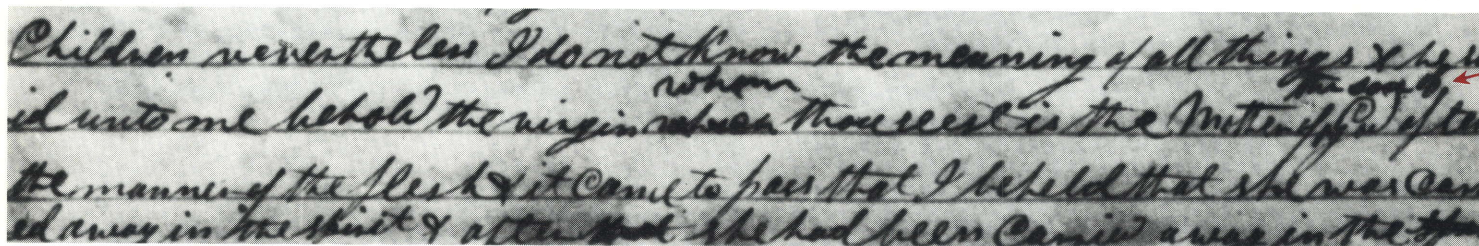 Children nevertheless I do not know the meaning of all things & he
whom the son of
id unto me behold the virgin which thou seest is the Mother of God after
the manner of the flesh & it came to pass that I beheld that she was Car
ed away in the spirit & after that she had been Carried away in the